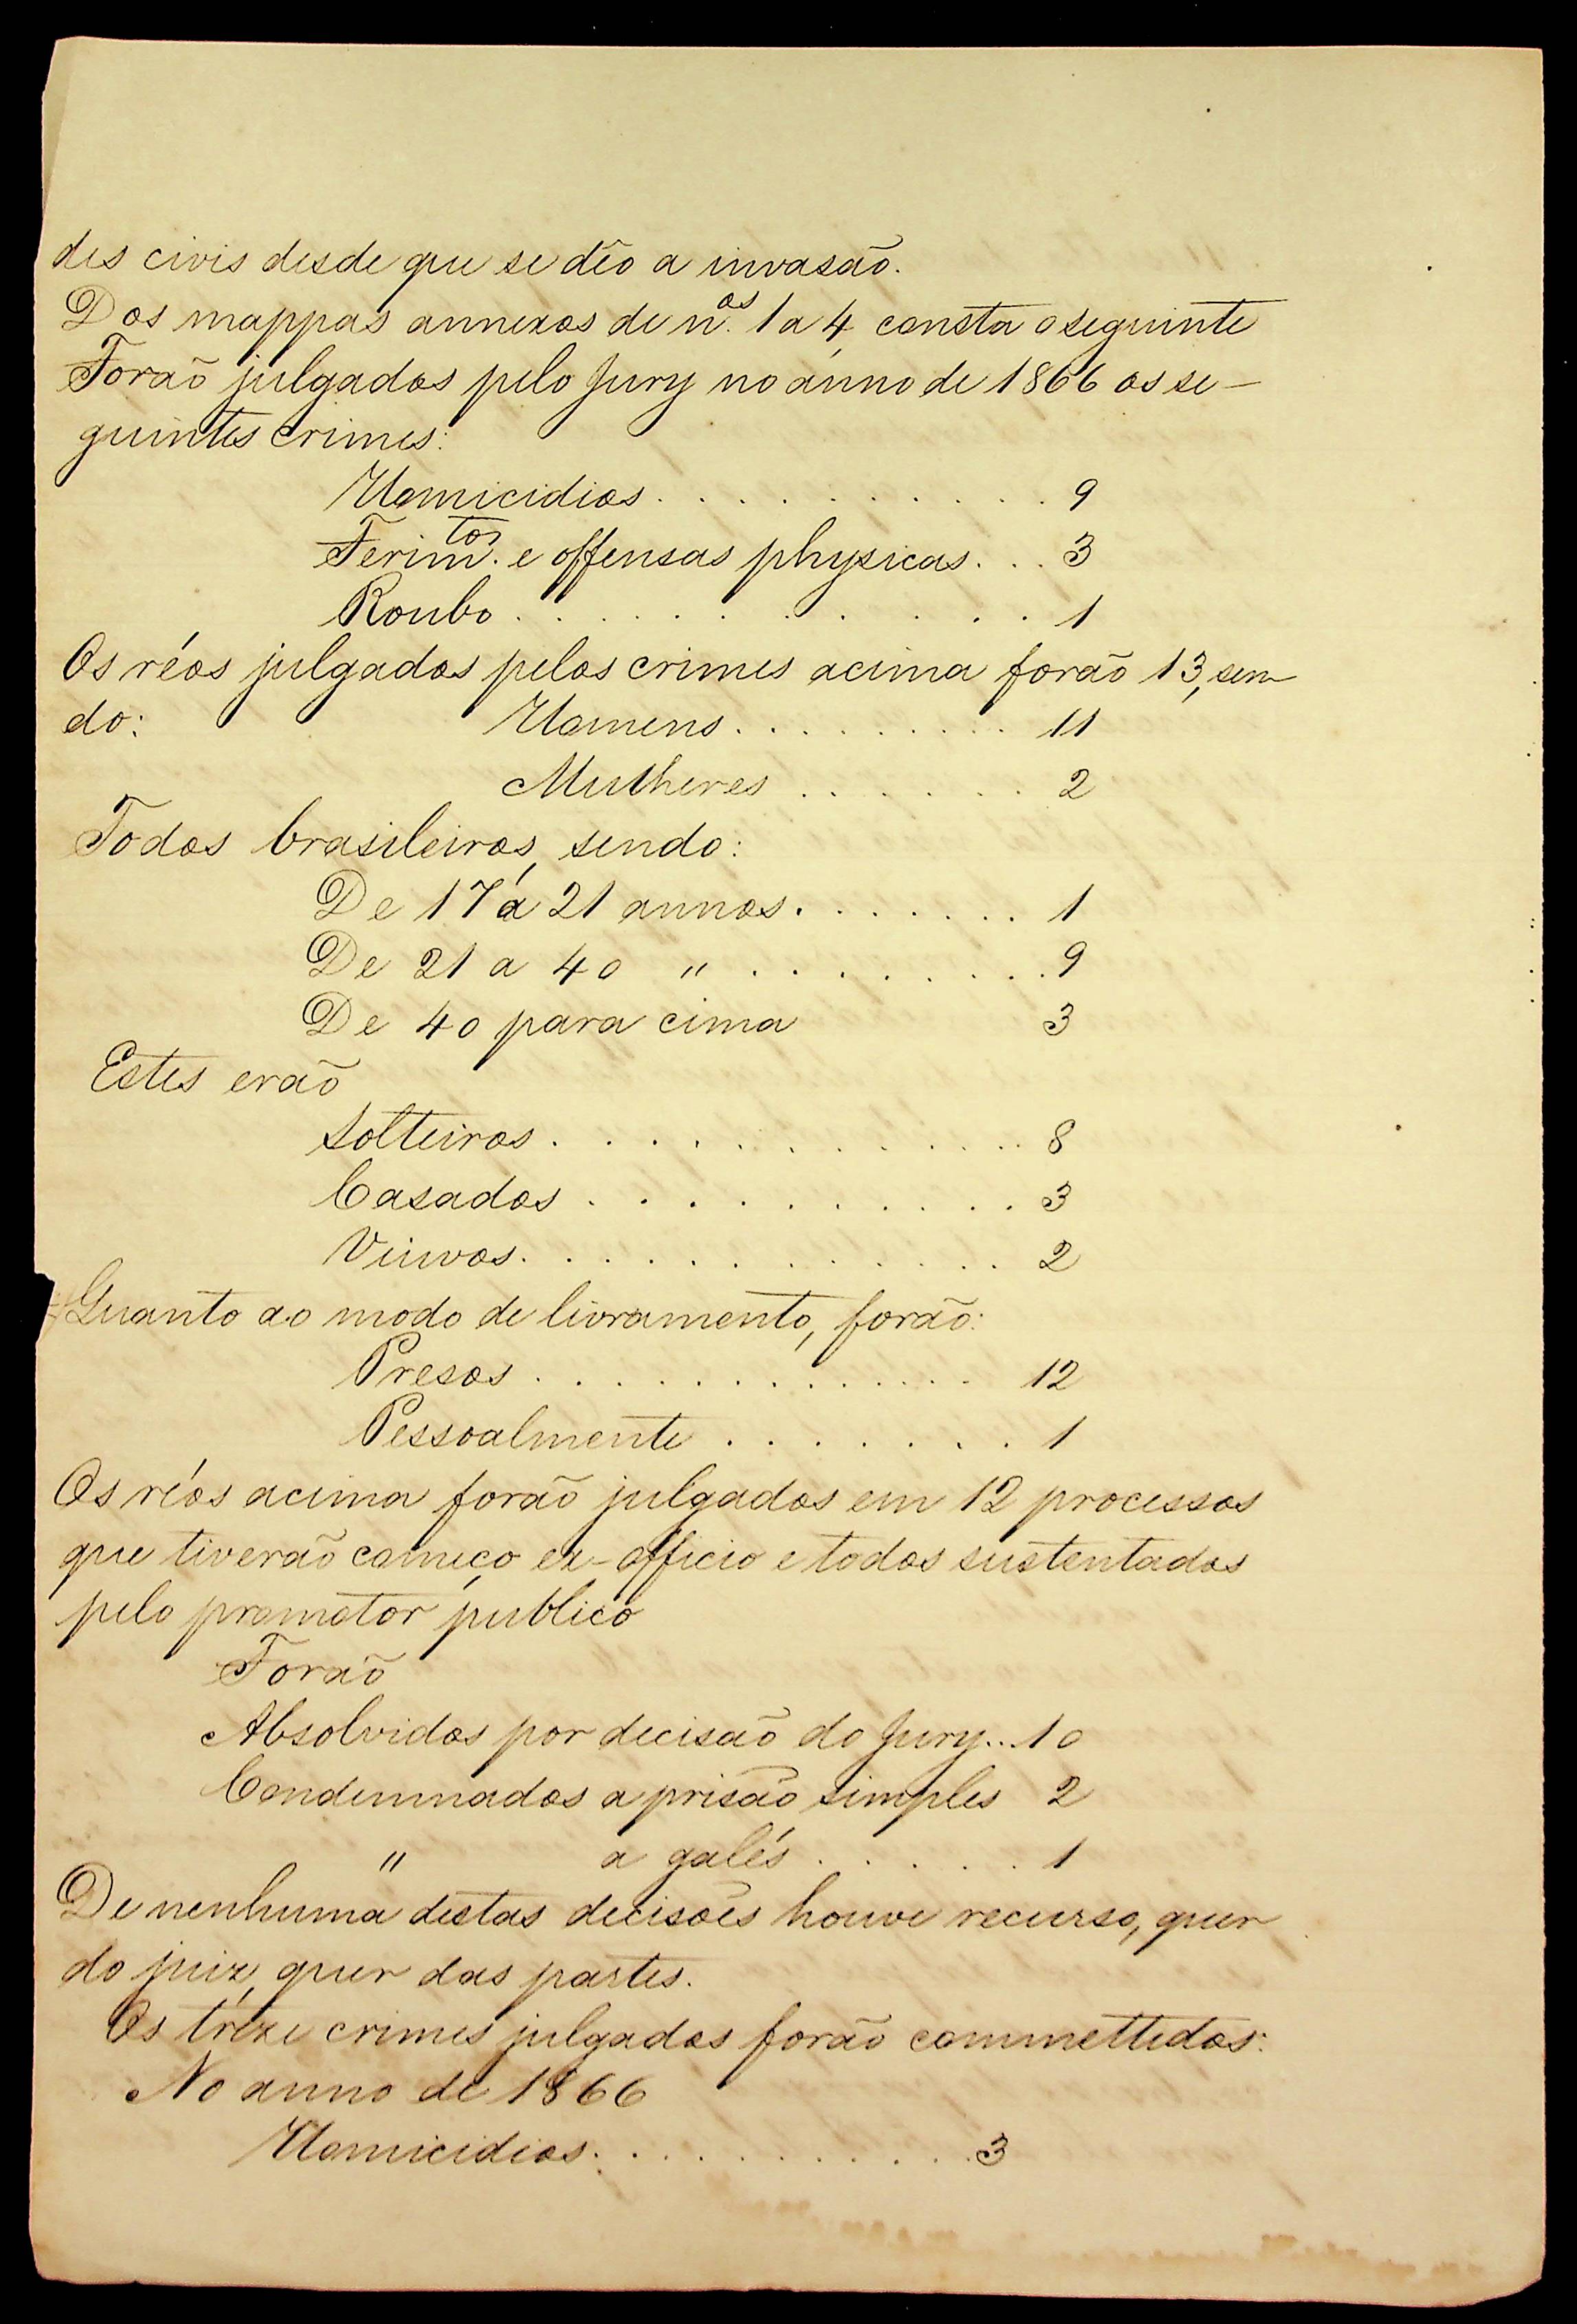 des civis desde que se dêo a invasão.
Dos mappas annexos de n.os 1 a 4, consta o seguinte
Forão julgados pelo Jury no anno de 1866 os se-
guintes crimes:
Homicidios . . . . . . . . . . 9
Ferim.tos e offensas physicas. . . 3
Roubo . . . . . . . . . . 1
Os réos julgados pelos crimes acima forão 13, sen
do: Homens . . . . . . . . . 11
Mulheres . . . . . . . 2
Todos brasileiros, sendo:
De 17 á 21 annos . . . . . . . 1
De 21 a 40 " . . . . . . . . 9
De 40 para cima 3
Estes erão
Solteiros . . . . . . . . . . . 8
Casados . . . . . . . . . . 3
Viuvos . . . . . . . . . . . 2
Quanto ao modo de livramento, forão:
Presos . . . . . . . . . . . 12
Pessoalmente . . . . . . . 1
Os réos acima forão julgados em 12 processos
que tiverão começo ex-officio e todos sustentados
pelo promotor publico
Forão
Absolvidos por decisão do Jury . . 10
Condemnados a prisão simples 2
" a galés . . . . . 1
De nenhuma destas decisões houve recurso, quer
do juiz, quer das partes.
Os treze crimes julgados forão commettidos:
No anno de 1866
Homicidios . . . . . . . . . . 3